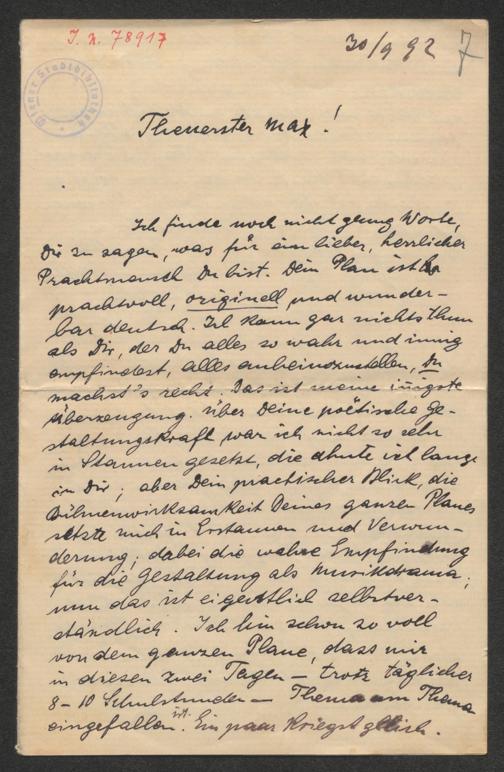 I. N. 78917
30/9 92
7
Wiener Stadtbibliothek
Theuerster Max!
Ich finde noch nicht genug Worte,
Dir zu sagen, was für ein lieber, herrlicher
Prachtmensch Du bist. Dein Plan ist
prachtvoll, originell und wunder-
bar deutsch. Ich kann gar nichts thun
als Dir, der Du alles so wahr und innig
empfindest, alles anheimzustellen, Du
machst's recht. Das ist meine innigste
Überzeugung. Über Deine poëtische Ge-
staltungskraft war ich nicht so sehr
in Staunen gesetzt, die ahnte ich lange
in Dir; aber Dein practischer Blick, die
Bühnenwirksamkeit Deines ganzen Planes
setzte mich in Erstaunen und Verwun-
derung; dabei die wahre Empfindung
für die Gestaltung als Musikdrama;
nun das ist eigentlich selbstver-
ständlich. Ich bin schon so voll
von dem ganzen Plane, dass mir
in diesen zwei Tagen – trotz täglicher
8–10 Schulstunden – Thema um Thema
eingefallen ist. Ein paar kriegst gleich.